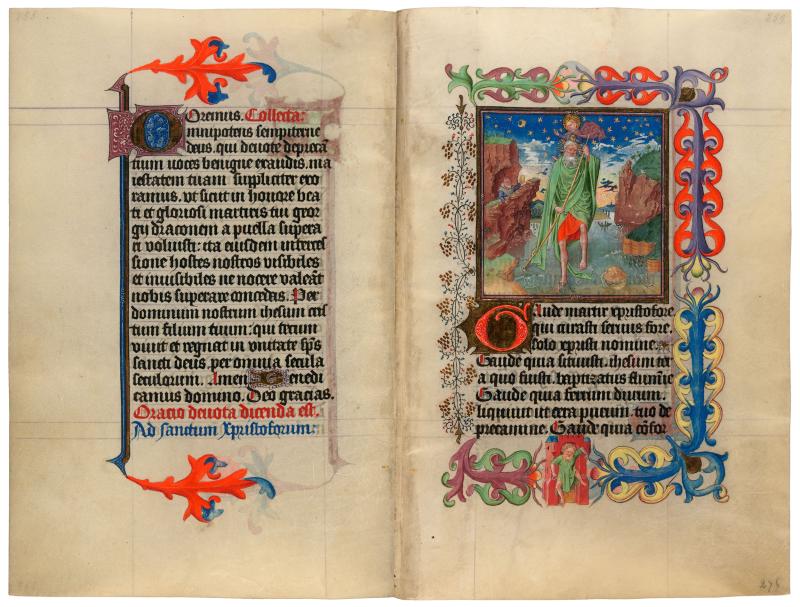 Oremus. Collecta:
mnipotens sempiterne
deus. qui deuote deprecā
tium uoces benigne exaudis. ma
iestatem tuam suppliciter exo
ramus. vt sicut in honore bea
ti et gloriosi martiris tui geor
gij draconem a puella supera
ri voluisti: ita eiusdem interces
sione hostes nostros visibiles
et inuisibiles ne nocere valeāt
nobis superare concedas. Per
dominum nostrum ihesum cris
tum filium tuum: qui tecum
viuit et regnat in vnitate sp̄s
sancti deus. per omnia secula
seculorum. Amen Benedi
camus domino. Deo gracias.
Oratio deuota dicenda est.
Ad sanctum Xpristoforum:
Gaude martir xpristofore
qui curasti seruus fore.
colo xpristi nomine.
Gaude quia sitiuisti. thesum ter
a quo fuisti. baptizatus flumīe
Gaude quia ferrum durum.
liquiuit ut cera purum. tuo de
precamine. Gaude quia cōfor
275